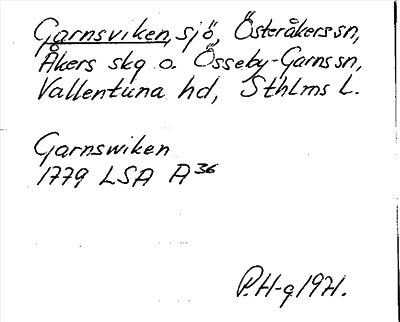 Garnsviken, sjö, Österåkers sn,
Åkers skg o. Össeby-Garns sn,
Vallentuna hd, Sthlms L.
Garnswiken
1779 LSA A36
P.H-g 1971.